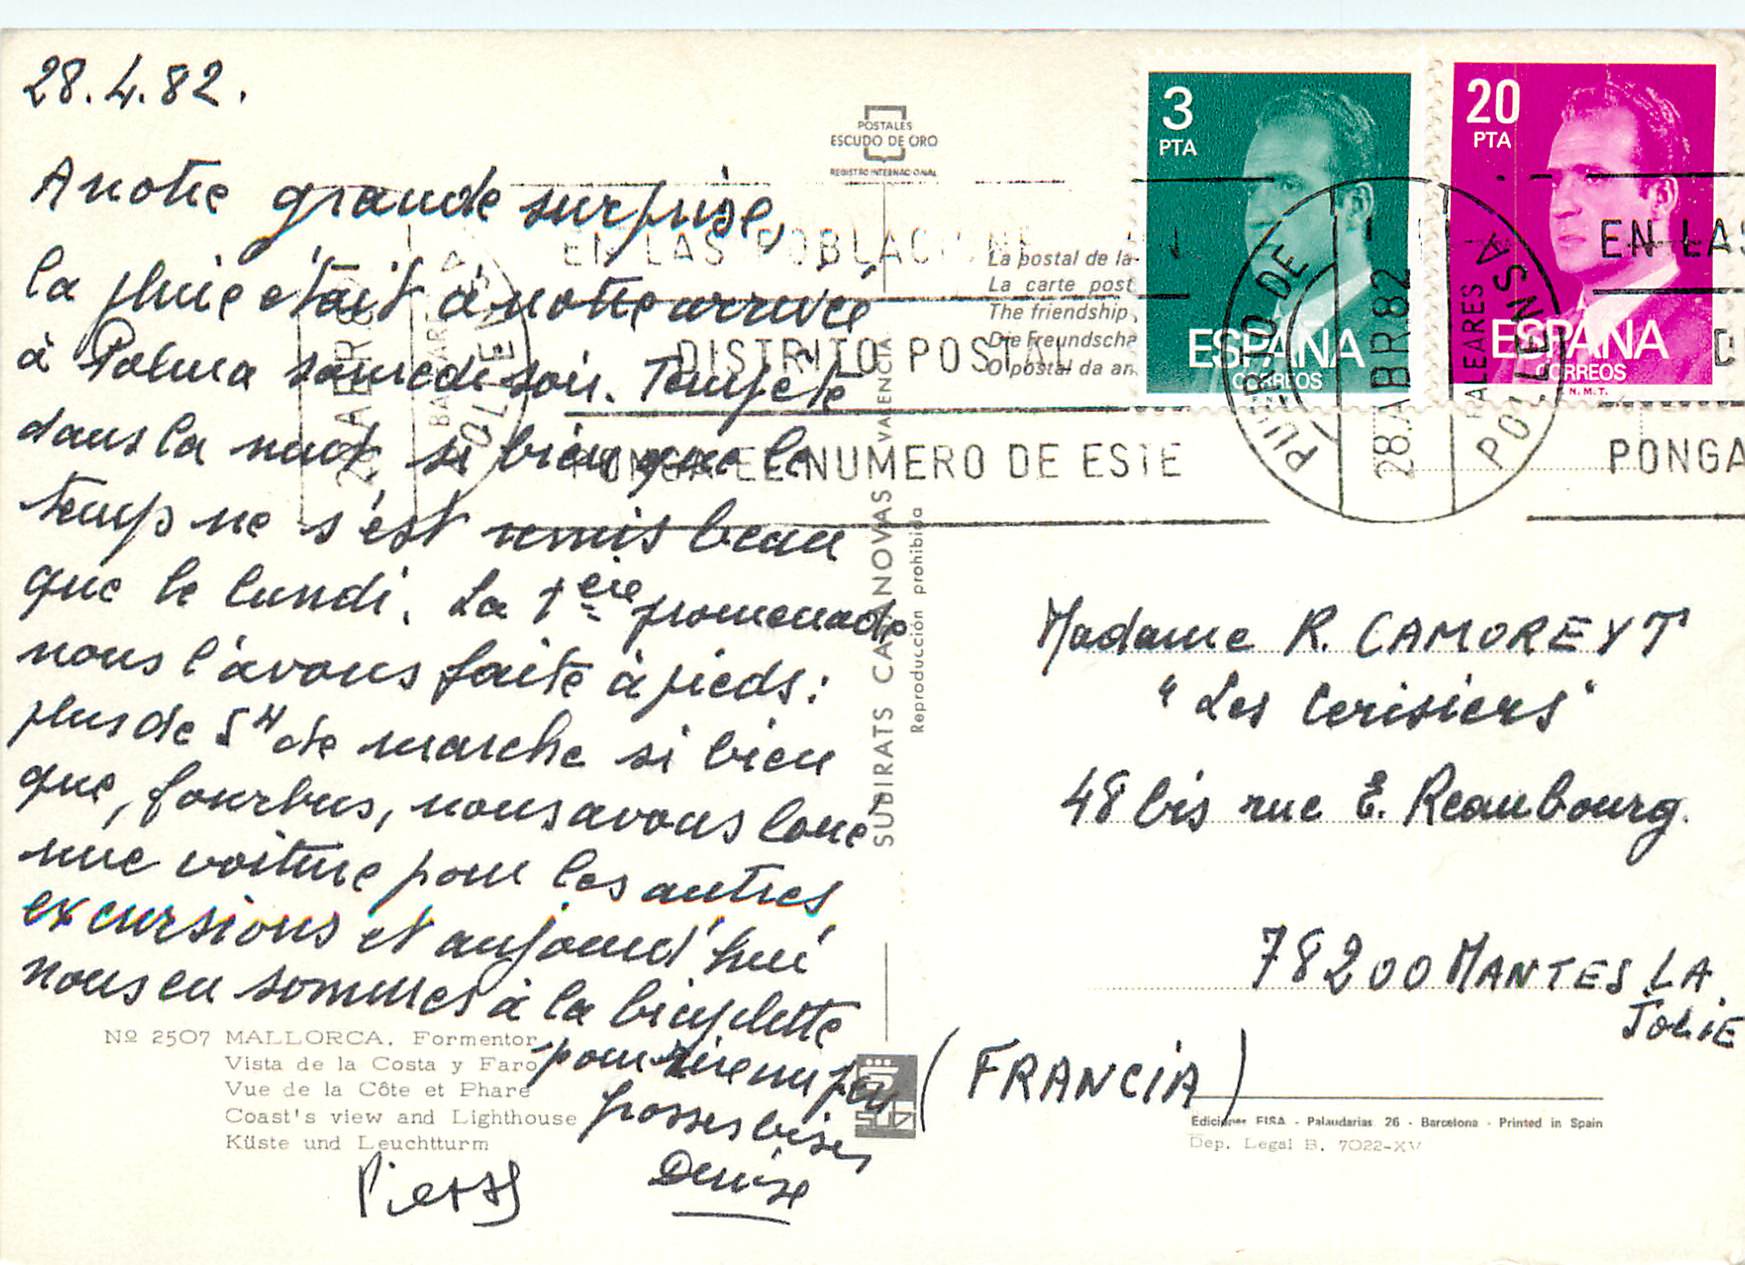 28.4.82.
A notre grande surprise,
la pluie était à notre arrivée
à Palma samedi soir. Tempête
dans la nuit si bien que le
temps ne s'est remis beau
que le lundi. La 1ère promenade
nous l'avons faite à pieds :
plus de 5H de marche si bien
que, fourbus, nous avons loué
une voiture pour les autres
excursions et aujourd'hui
nous en sommes à la bicyclette
pour rire un peu
grosses bises
Denise
Pierre
Nº 2507 MALLORCA. Formentor
Vista de la Costa y Faro
Vue de la Côte et Phare
Coast's view and Lighthouse
Küste und Leuchtturm
POSTALES
ESCUDO DE ORO
REGISTRO INTERNACIONAL
La postal de la
La carte post
The friendship
Die Freundscha
O postal da am
SUBIRATS CASANOVAS VALENCIA
Reproducción prohibida
3
PTA
ESPAÑA
CORREOS
20
PTA
ESPAÑA
CORREOS
F.N.M.T.
PUERTO DE POLLENSA
BALEARES
28 ABR 82
EN LAS POBLACIONE
DISTRITO POSTAL
PONGA EL NUMERO DE ESTE
EN LAS
D
PONGA
Madame R. CAMOREYT
"Les Cerisiers"
48 bis rue E. Reaubourg.
78200 MANTES LA
JOLIE
(FRANCIA)
Ediciones FISA - Palaudarias, 26 - Barcelona - Printed in Spain
Dep. Legal B. 7022-XV